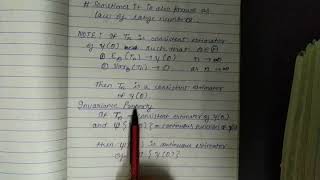 # Sometimes It Is also known as
Law of large number.
NOTE: If Tn is consistent estimator
of γ(θ) and such that
① E (Tn) → γ(θ) as n → ∞
② Var (Tn) → 0 as n → ∞
Then Tn is a consistent estimator
of γ(θ).
Invariance Property
If Tn is consistent estimator of γ(θ)
and ψ{γ(θ)} is continuous function of γ(θ)
then ψ is continuous estimator
of ψ{γ(θ)}